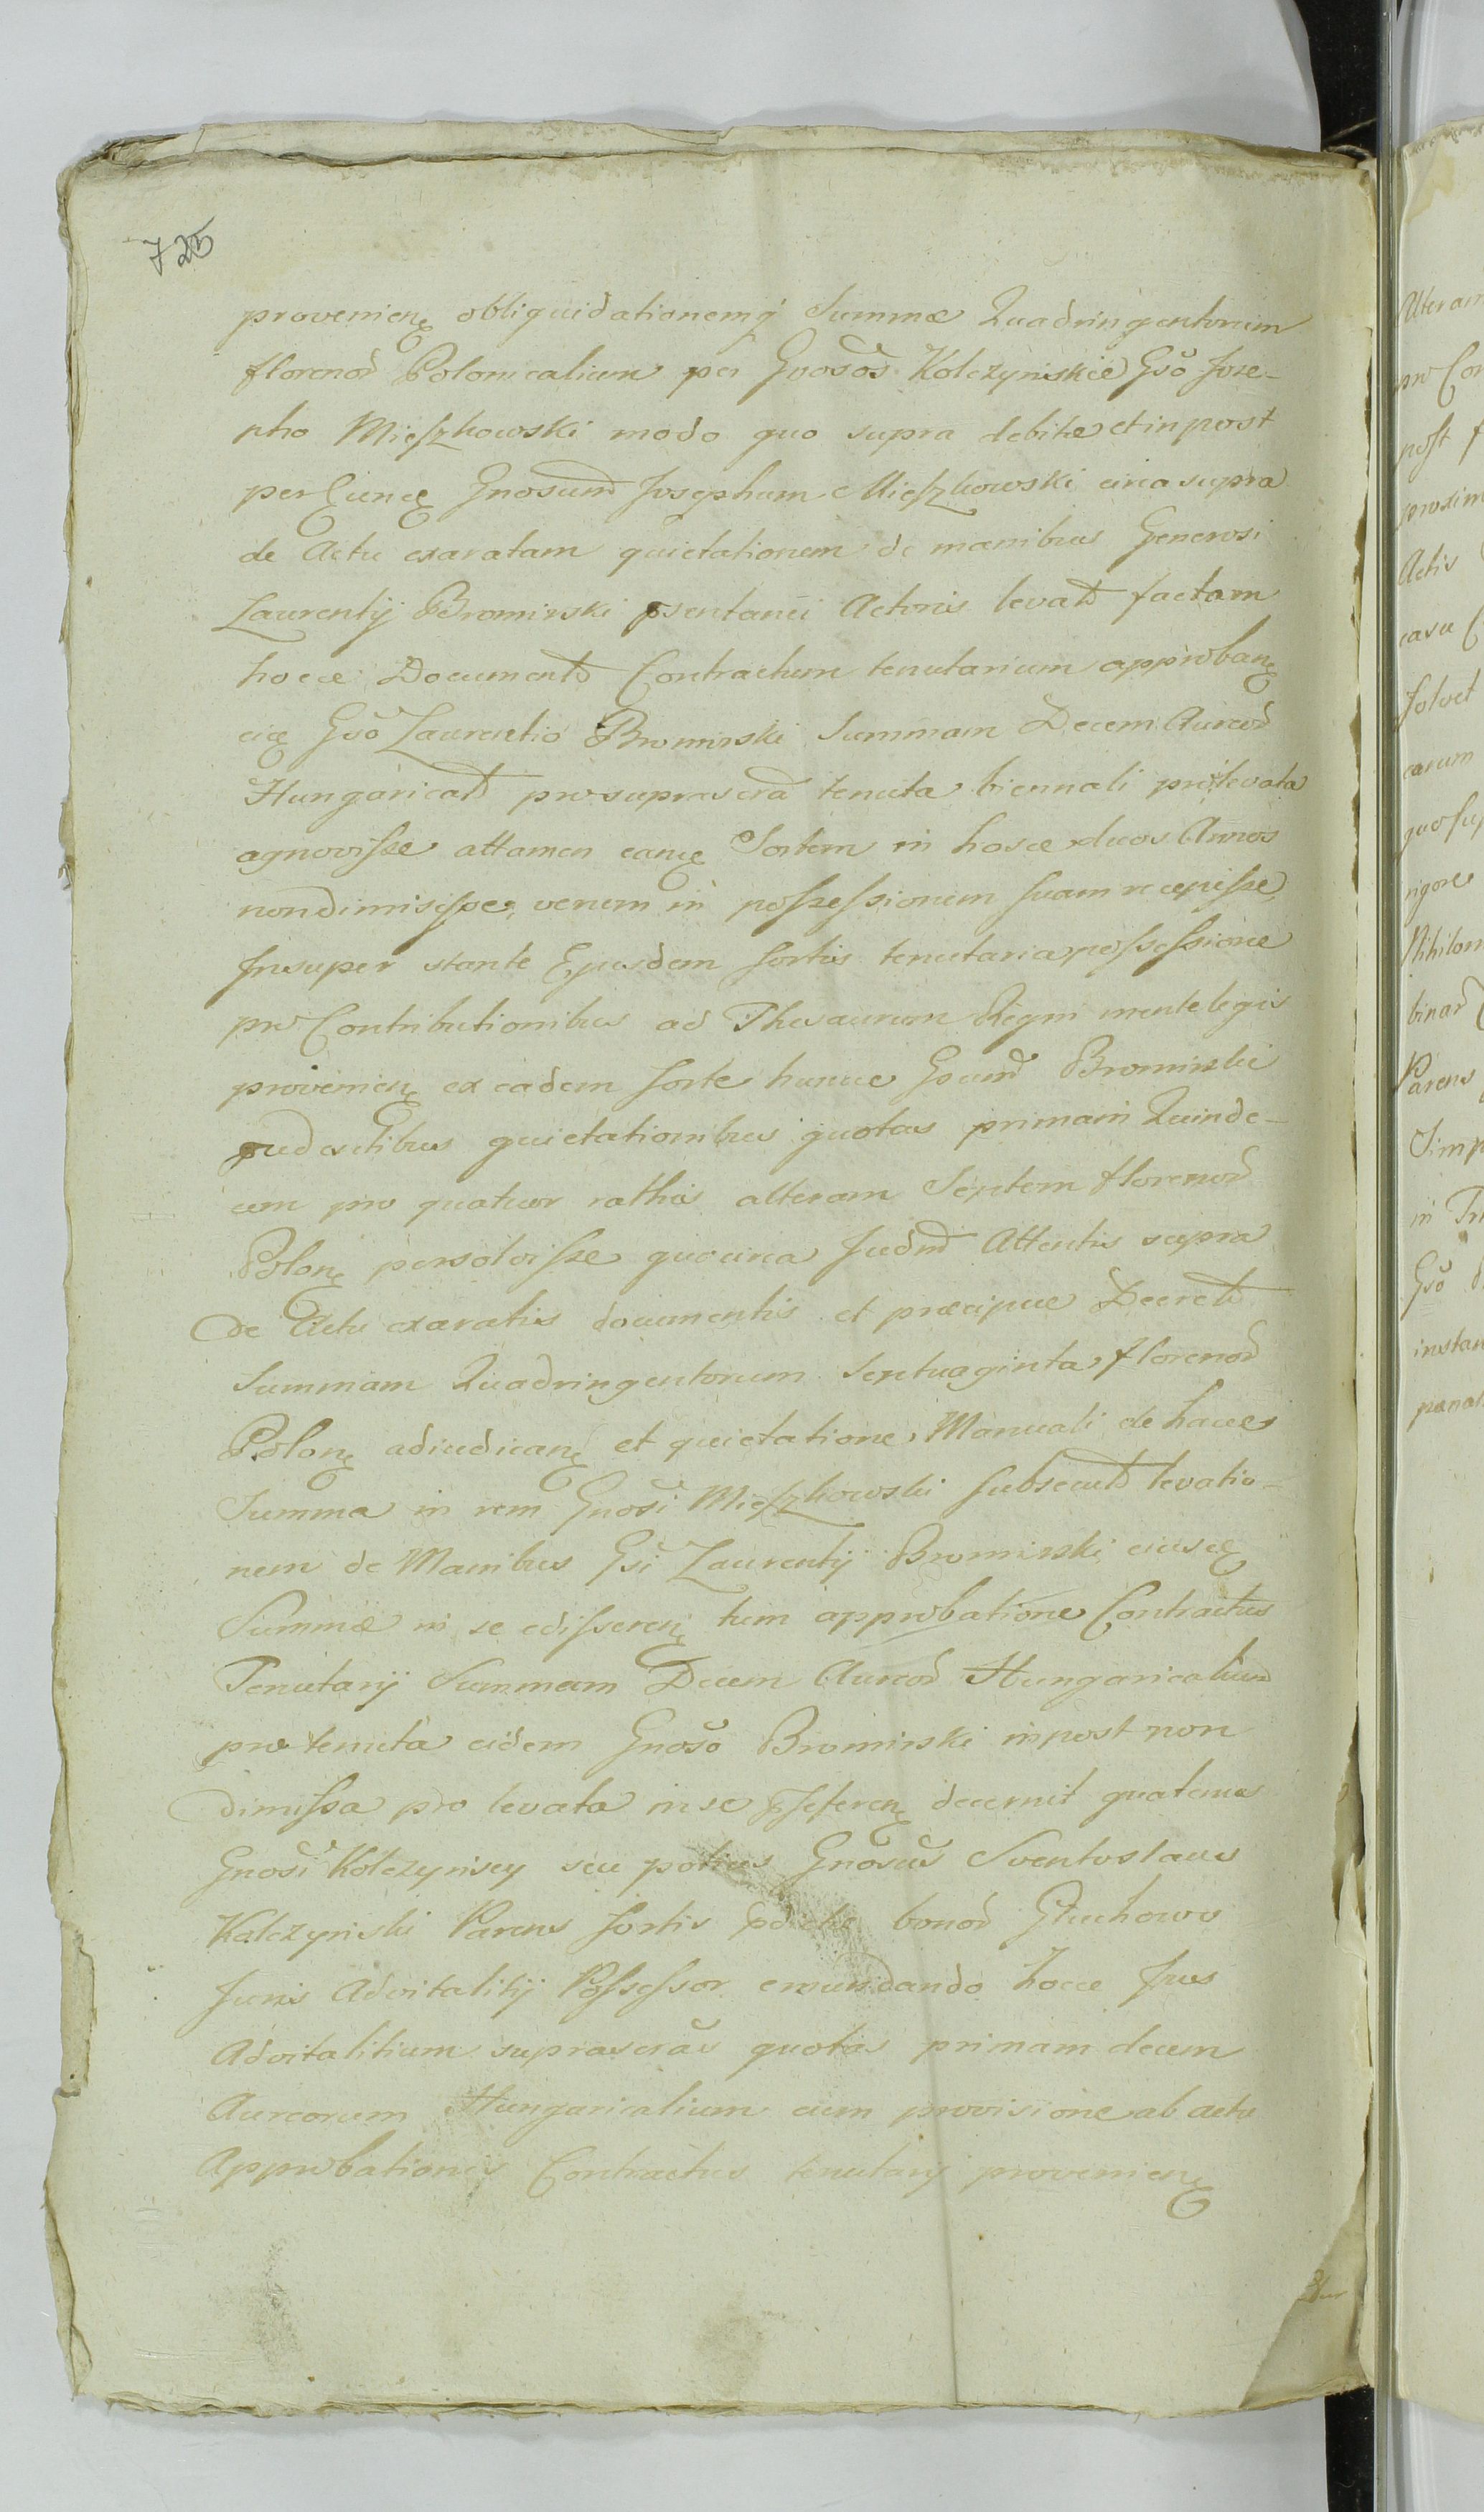 725
provenienę obliquidationemq̃ Summæ Quadringentorum
florenoŕ Polonicalium per Gnosos Kolczynskie Gño Jose-
pho Mieszkowski modo quo supra debitæ et in post
per Euncę Gnosum Josephum Mieszkowski circa supra
de Actu exaratam quietationem de manibus Generosi
Laurentij Bromirski psentanei Actoris levatɔ factam
hocce Documentɔ Contractum tenutarium approbanę
eię Gño Laurentio Bromirski Summam Decem Aureoŕ
Hungaricalɔ pro suprascrã tenuta biennali prolevata
agnovisse attamen eanę Sortem in hosce duos Annos
non dimisisse, verum in possessionem suam recepisse,
Insuper stante Ejusdem sortis tenutaria possessione
pro Contributionibus ad Thesaurum Regni mente legis
provenienę ex eadem sorte hunce Gsum Bromirski
quietationibus quotas primam Quinde-
cem pro quatuor rathis alteram Septem florenoŕ
Polonę persolvisse quocirca Judm Attentis supra
de Actu exaratis documentis et præcipue Decretɔ
Summam Quadringentorum Septuaginta florenoŕ
Polonę adiudicanę et quietatione Manuali de hacce
Summa in rem Gnosi Mieszkowski subsecutɔ levatio-
nem de Manibus Gsi Laurentij Bromirski eiuscę
Summæ in se edisserenę tum approbatione Contractus
Tenutarij Summam Decem Aureoŕ Hungaricalium
pro tenuta eidem Gnoso Bromirski inpost non
dimissa pro levata in se decernit quatenus
Gnosi Kolczynscy seu potius Gnosus Sventoslaus
Kolczynski Parens sortis pdictæ bonoŕ Gluchowo
Juris Advitalitij Possessor emundando hocce Jus
Advitalitium suprascrãs quotas primam decem
Aureorum Hungaricalium cum provisione ab actu
Approbationis Contractus tenutarij provenienę
Alteram
pro Con
post
proxim
Actis
casu
Solvet
earum
quo sup
rigore
Nihilom
binaŕ
Parens
Simp
in Tri
Gño
instan
pænar